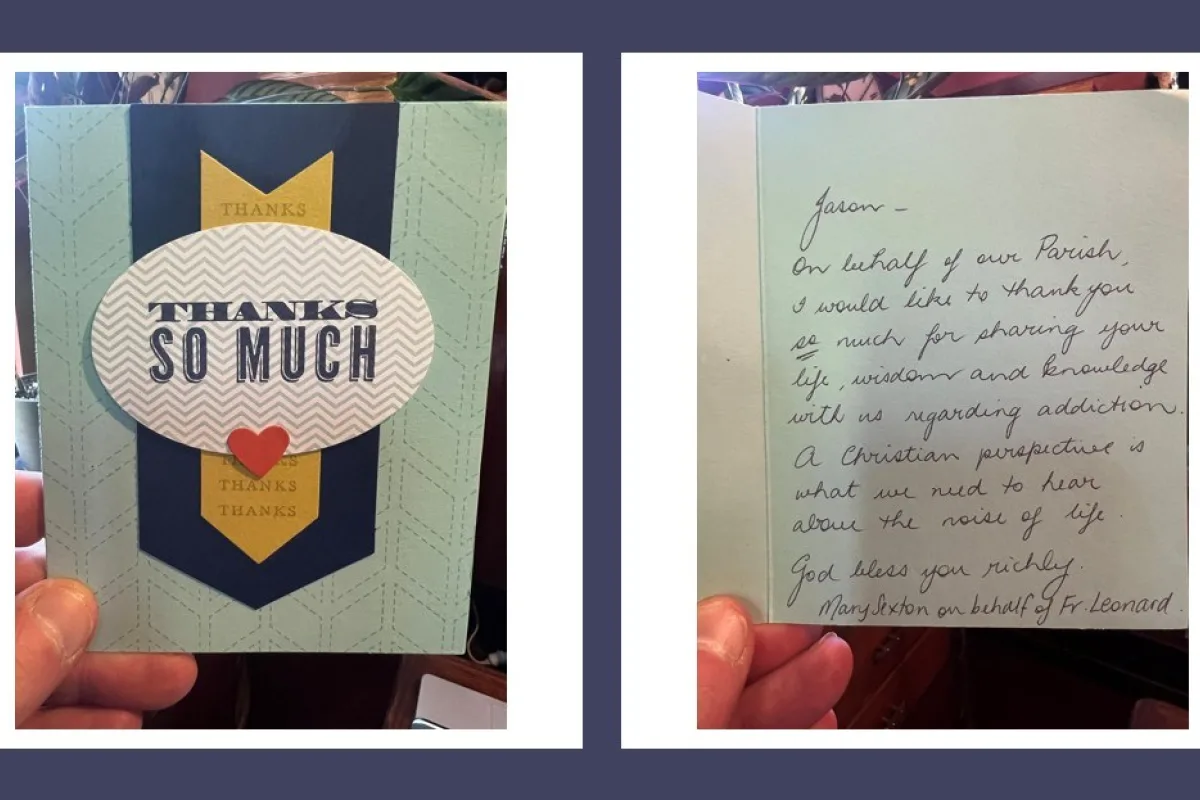 THANKS
THANKS
SO MUCH
THANKS
THANKS
THANKS
Jason –
On behalf of our Parish,
I would like to thank you
so much for sharing your
life, wisdom and knowledge
with us regarding addiction.
A Christian perspective is
what we need to hear
above the noise of life.
God bless you richly.
Mary Sexton on behalf of Fr. Leonard.